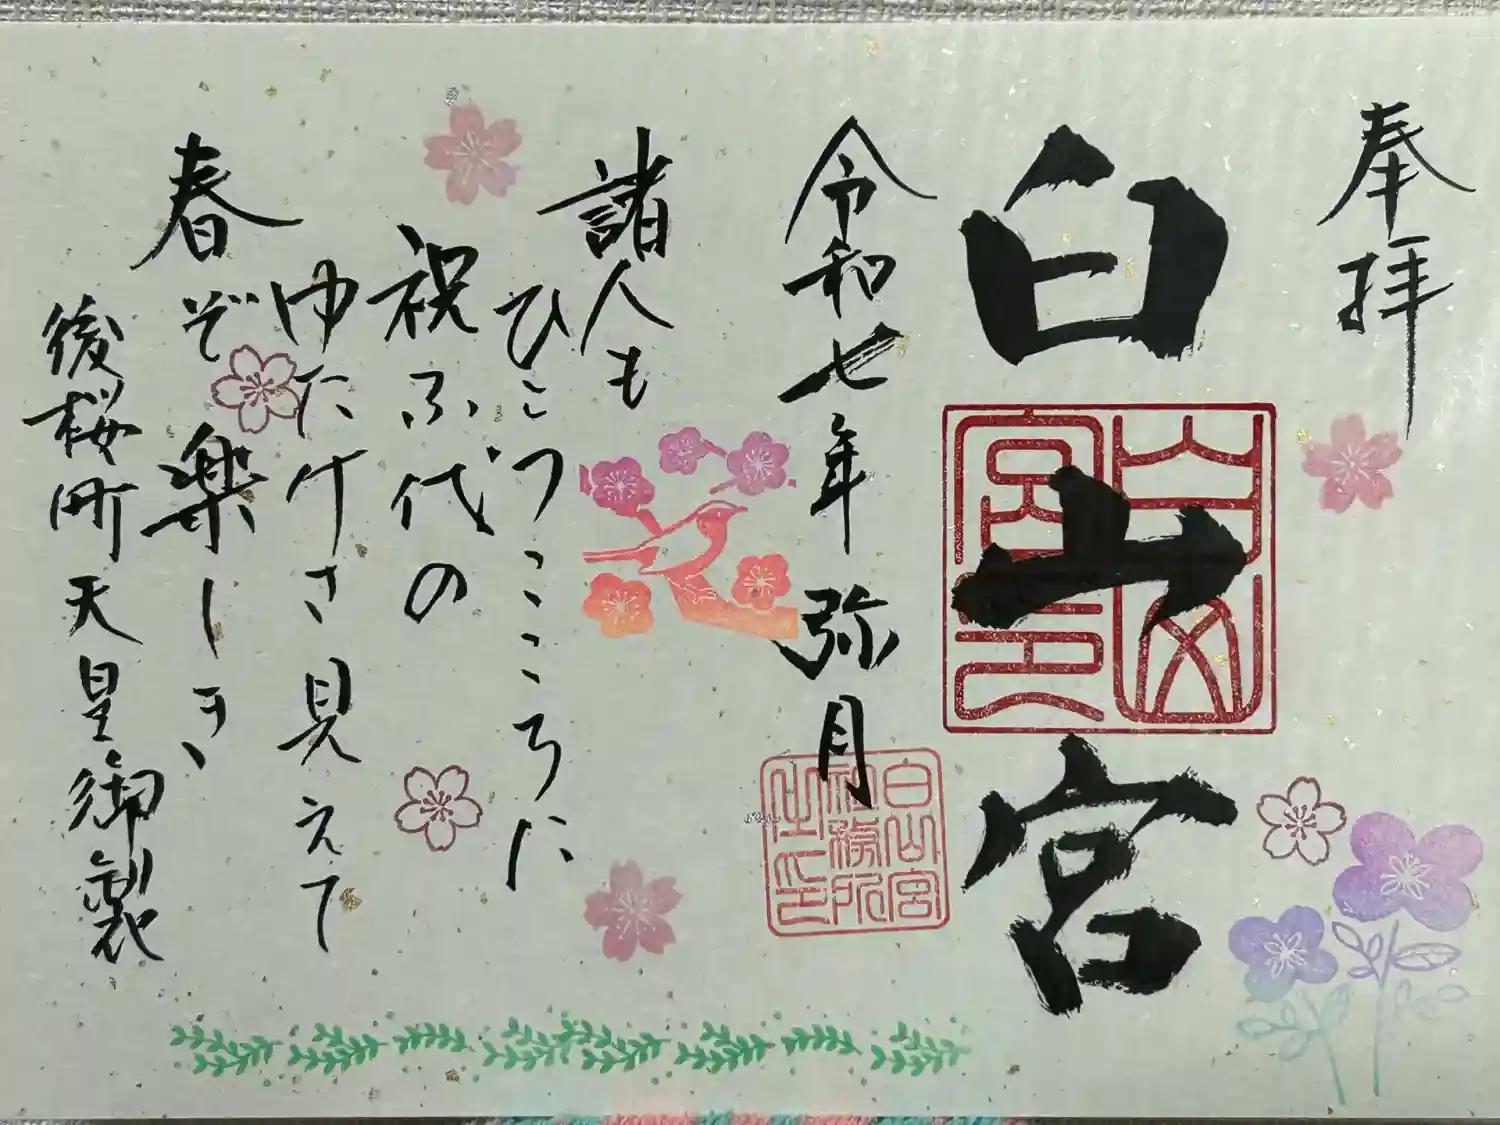 奉拝
白山宮
白山宮印
令和七年弥月
白山宮
社務所
之印
諸人も
ひとつこころに
祝ふ代の
ゆたけさ見えて
春ぞ楽しき
後桜町天皇御製